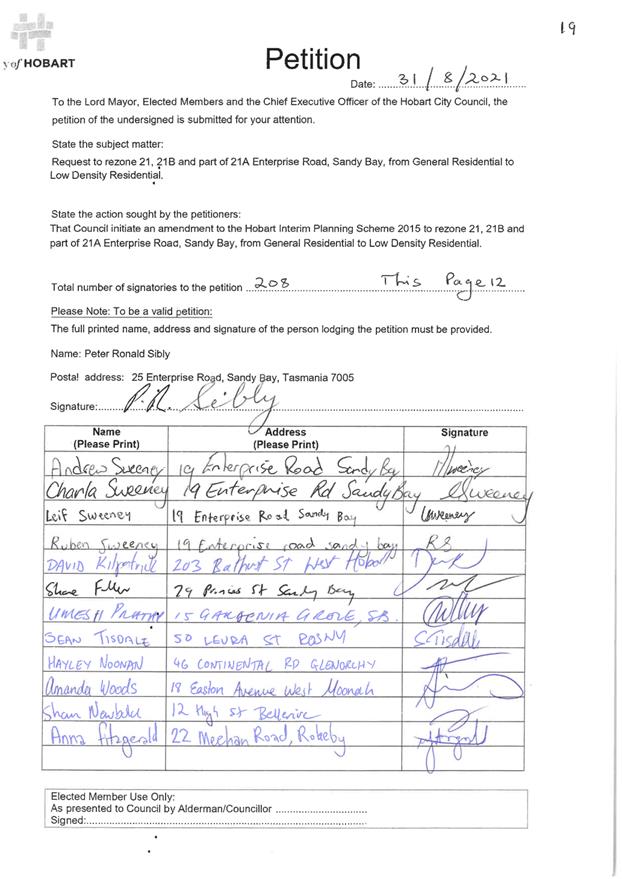 19
y of HOBART
Petition
Date: 31/8/2021
To the Lord Mayor, Elected Members and the Chief Executive Officer of the Hobart City Council, the
petition of the undersigned is submitted for your attention.
State the subject matter:
Request to rezone 21, 21B and part of 21A Enterprise Road, Sandy Bay, from General Residential to
Low Density Residential.
State the action sought by the petitioners:
That Council initiate an amendment to the Hobart Interim Planning Scheme 2015 to rezone 21, 21B and
part of 21A Enterprise Road, Sandy Bay, from General Residential to Low Density Residential.
Total number of signatories to the petition 208 This Page 12
Please Note: To be a valid petition:
The full printed name, address and signature of the person lodging the petition must be provided.
Name: Peter Ronald Sibly
Postal address: 25 Enterprise Road, Sandy Bay, Tasmania 7005
Signature: P.R. Sibly
Name Address Signature
(Please Print) (Please Print)
Andrew Sweeney 19 Enterprise Road Sandy Bay Sweeney
Charla Sweeney 19 Enterprise Rd Sandy Bay CSweeney
Leif Sweeney 19 Enterprise Road Sandy Bay LSweeney
Ruben Sweeney 19 Enterprise road sandy bay RS
DAVID Kilpatrick 203 Bathurst St West Hobart
Shane Fuller 79 Princes St Sandy Bay
UMESH 15 GARDENIA GROVE, S.B.
SEAN TISDALE 50 LEURA ST ROSNY STisdale
HAYLEY NOONAN 46 CONTINENTAL RD GLENORCHY
Amanda Woods 18 Easton Avenue West Moonah
12 High St Bellerive
Anna Fitzgerald 22 Meehan Road, Rokeby
Elected Member Use Only:
As presented to Council by Alderman/Councillor
Signed: